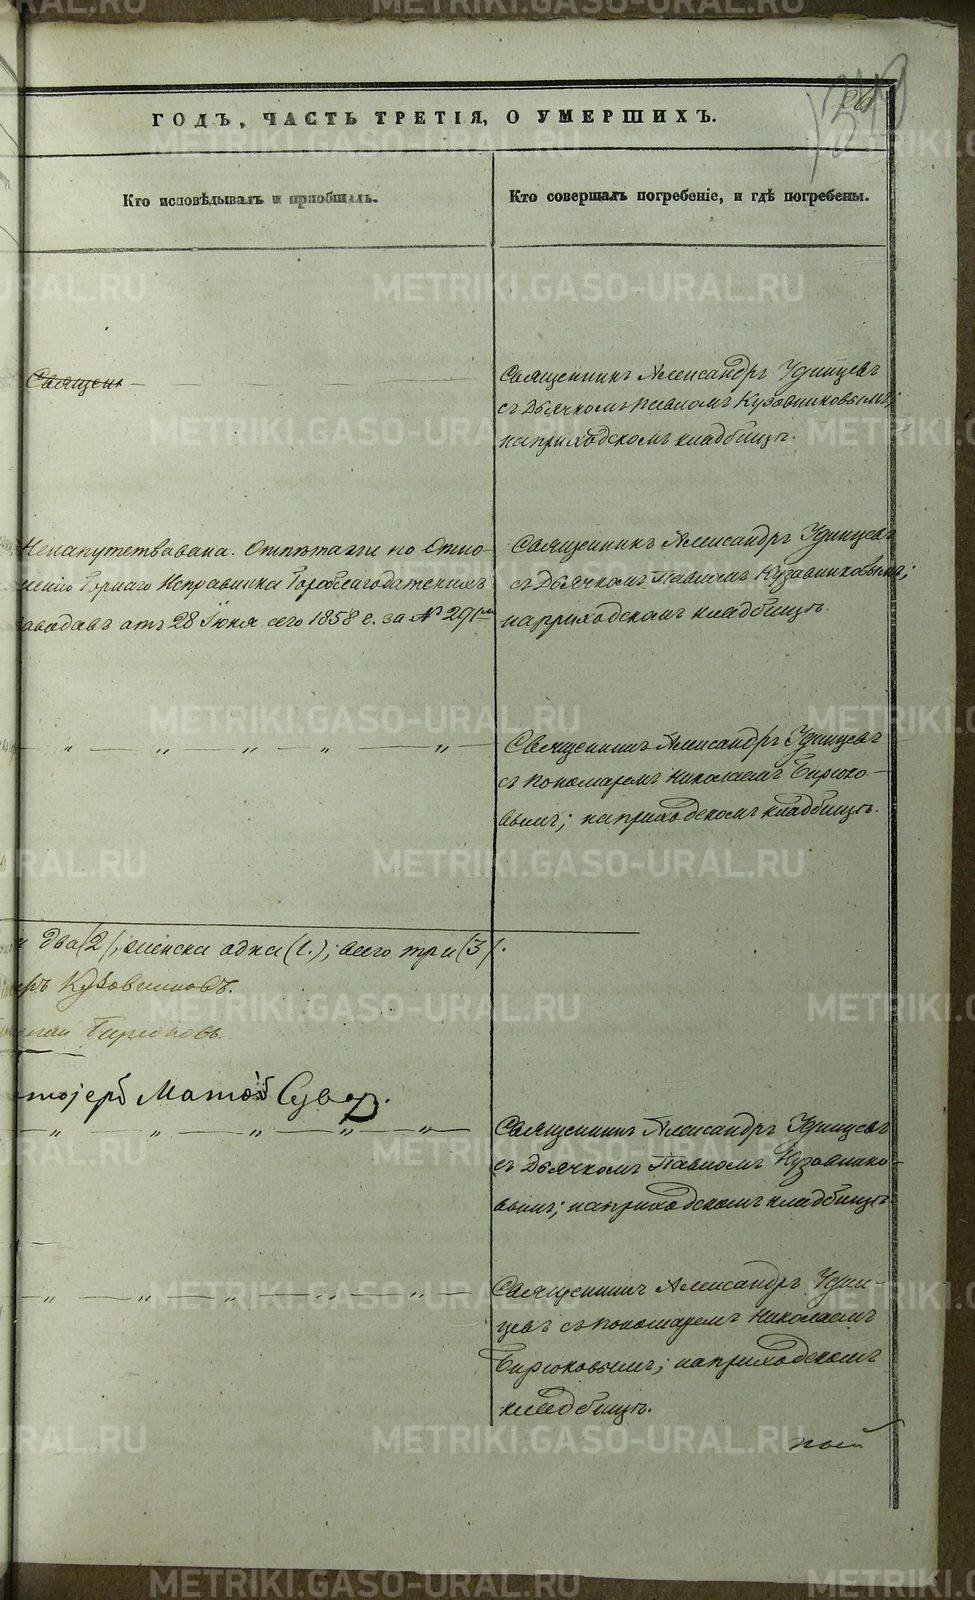 ГОДЪ, ЧАСТЬ ТРЕТІЯ, О УМЕРШИХЪ.
Кто исповѣдывалъ и приобщалъ.
Кто совершалъ погребеніе, и гдѣ погребены.
Священ
Священникъ Александръ Удинцевъ
съ Дьячкомъ Павломъ Кузовниковымъ;
на приходскомъ кладбищѣ.
Ненапутствована. Отпѣта по Отно-
шенію Горнаго Исправника Гороблагодатскихъ
заводовъ отъ 28 Іюня сего 1858 г. за № 291
Священникъ Александръ Удинцевъ
съ Дьячкомъ Павломъ Кузовниковымъ;
на приходскомъ кладбищѣ.
— „ — „ — „ — „ — „ —
Священникъ Александръ Удинцевъ
съ пономаремъ Николаемъ Бирюко-
вымъ; на приходскомъ кладбищѣ.
два (2), женска одна (1.); всего три (3).
Кузовниковъ.
Бирюковъ.
— „ — „ — „ — „ — „ —
Священникъ Александръ Удинцевъ
съ Дьячкомъ Павломъ Кузовнико-
вымъ; на приходскомъ кладбищѣ.
— „ — „ — „ — „ — „ —
Священникъ Александръ Удин-
цевъ съ пономаремъ Николаемъ
Бирюковымъ; на приходскомъ
кладбищѣ.
METRIKI.GASO-URAL.RU